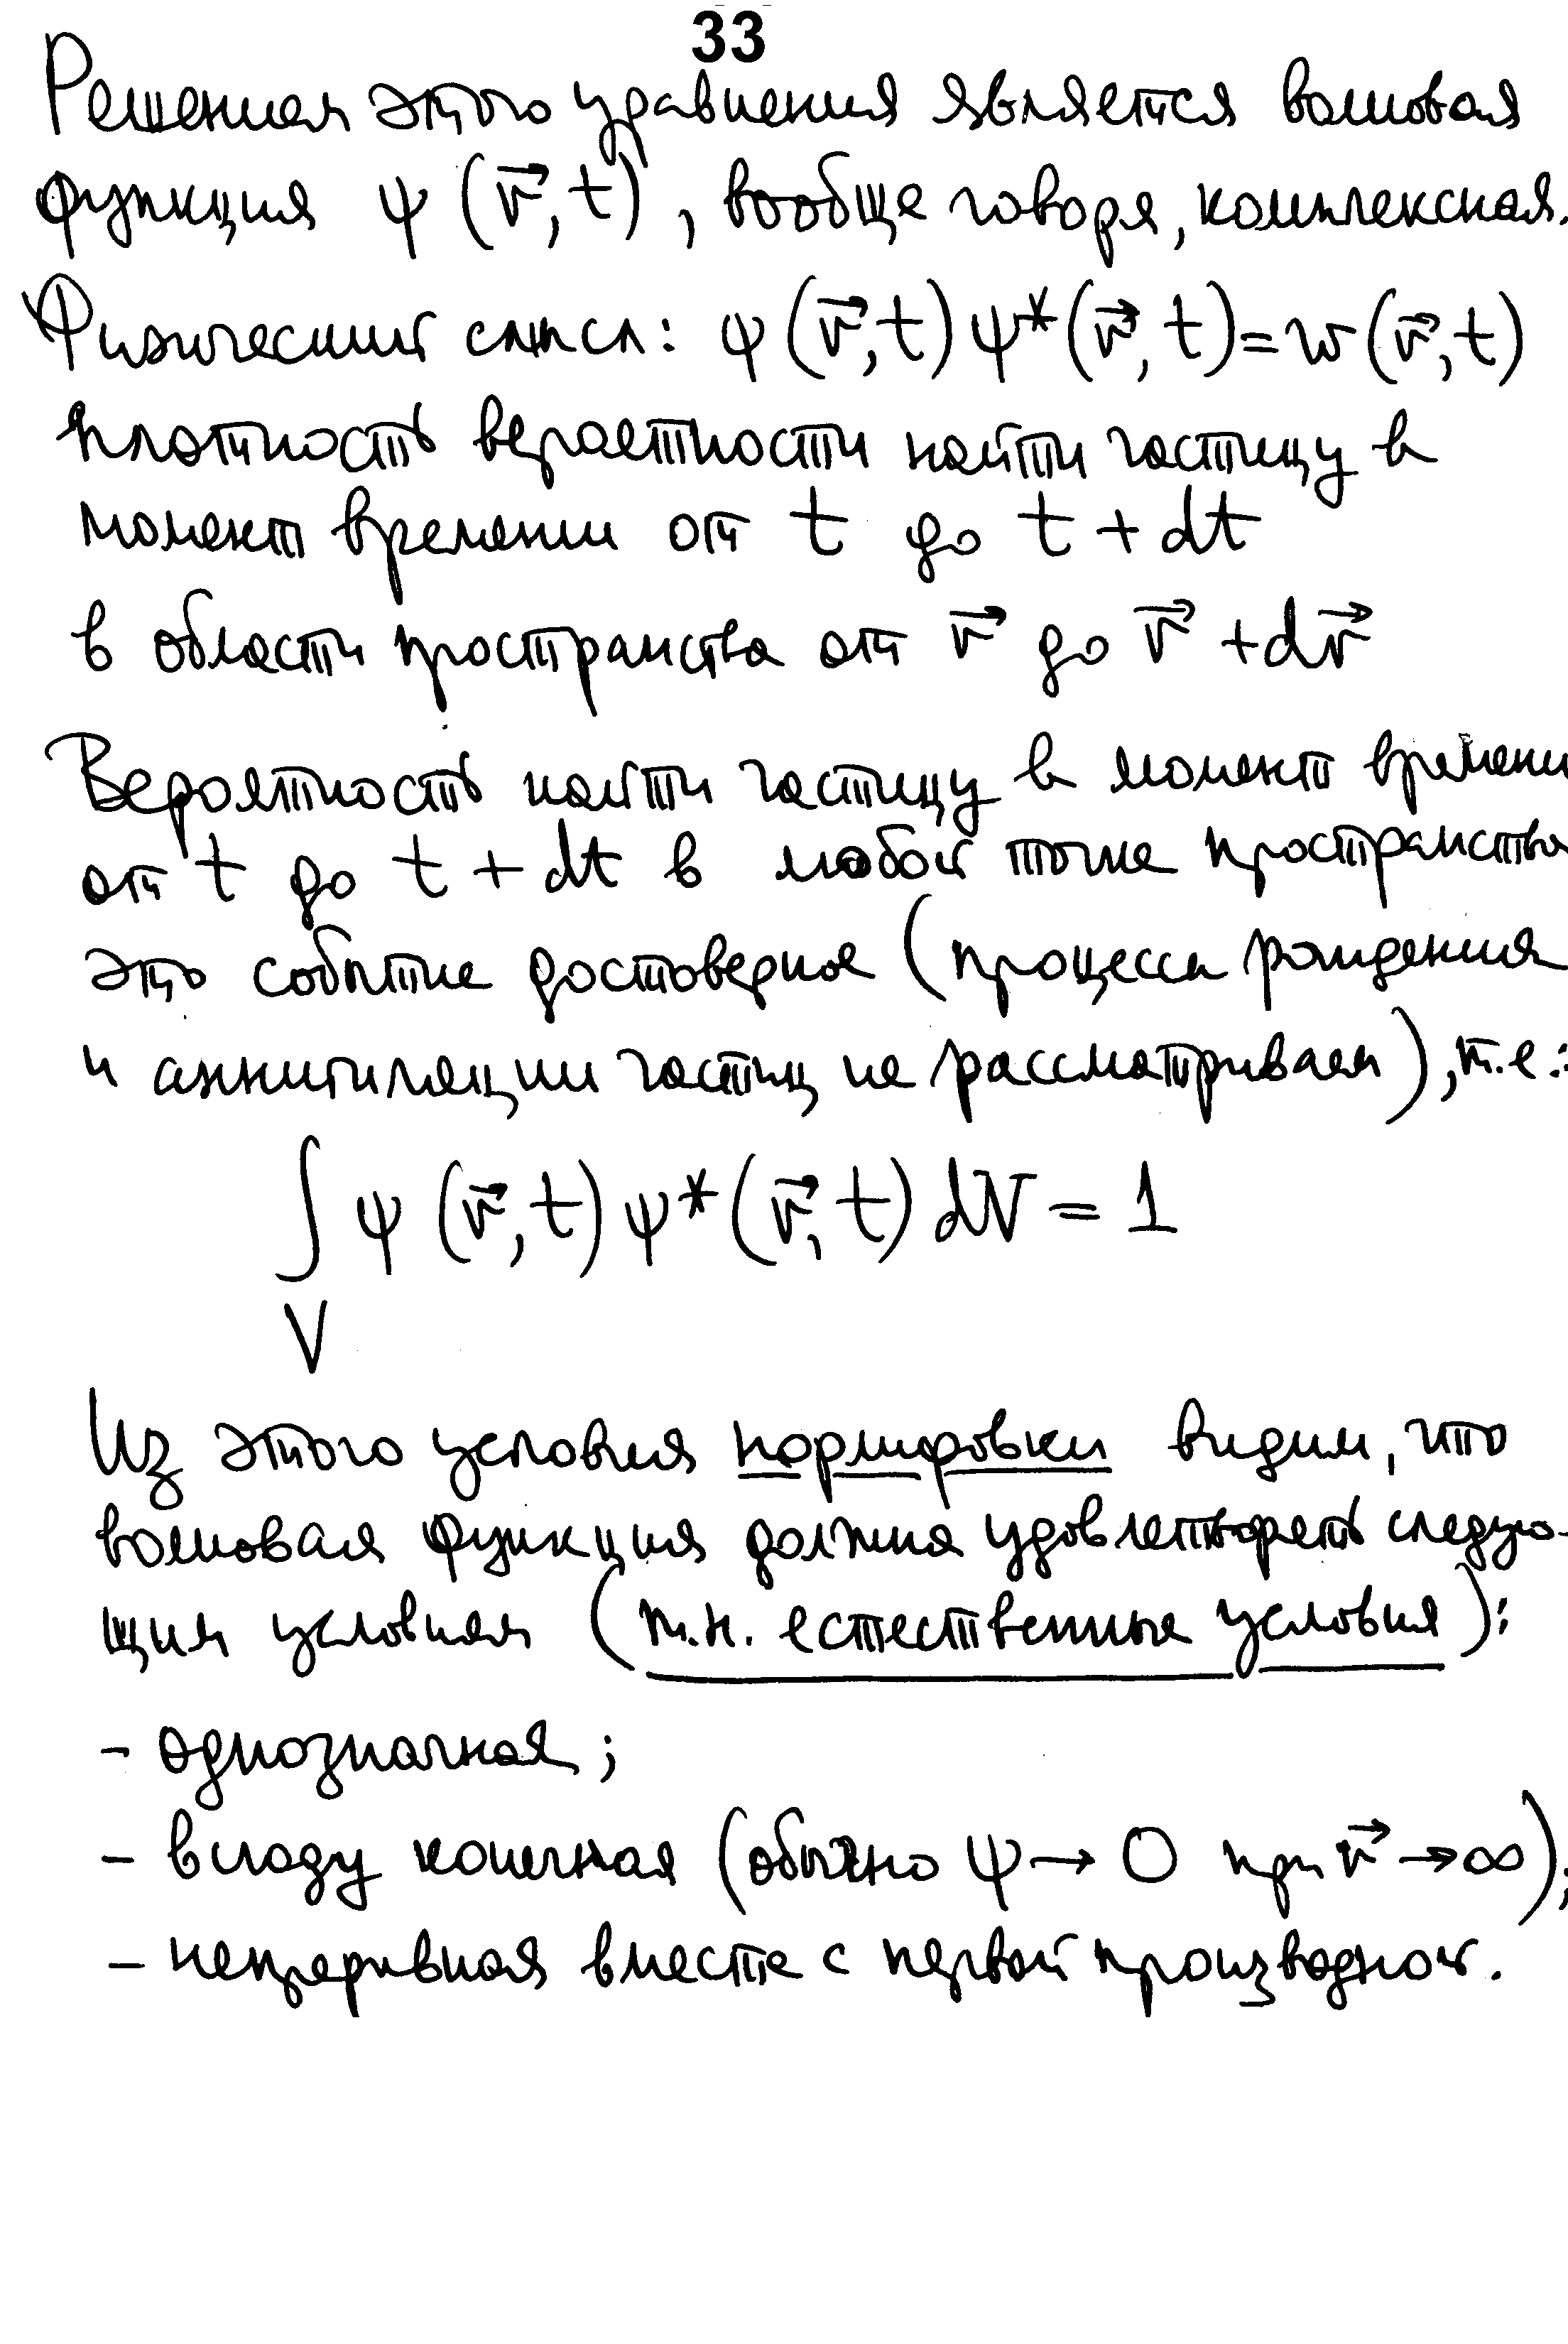 33
Решением этого уравнения является волновая
функция ψ (r⃗, t), вообще говоря, комплексная.
Физический смысл: ψ (r⃗, t) ψ* (r⃗, t) = w (r⃗, t)
плотность вероятности найти частицу в
момент времени от t до t + dt
в области пространства от r⃗ до r⃗ + dr⃗
Вероятность найти частицу в момент времени
от t до t + dt в любой точке пространства
это событие достоверное (процессы рождения
и аннигиляции частиц не рассматриваем), т.е.:
∫ ψ (r⃗, t) ψ* (r⃗, t) dV = 1
V
Из этого условия нормировки видим, что
волновая функция должна удовлетворять следую-
щим условиям (т.н. естественные условия):
- однозначная;
- всюду конечная (обычно ψ → 0 при r⃗ → ∞);
- непрерывная вместе с первой производной.